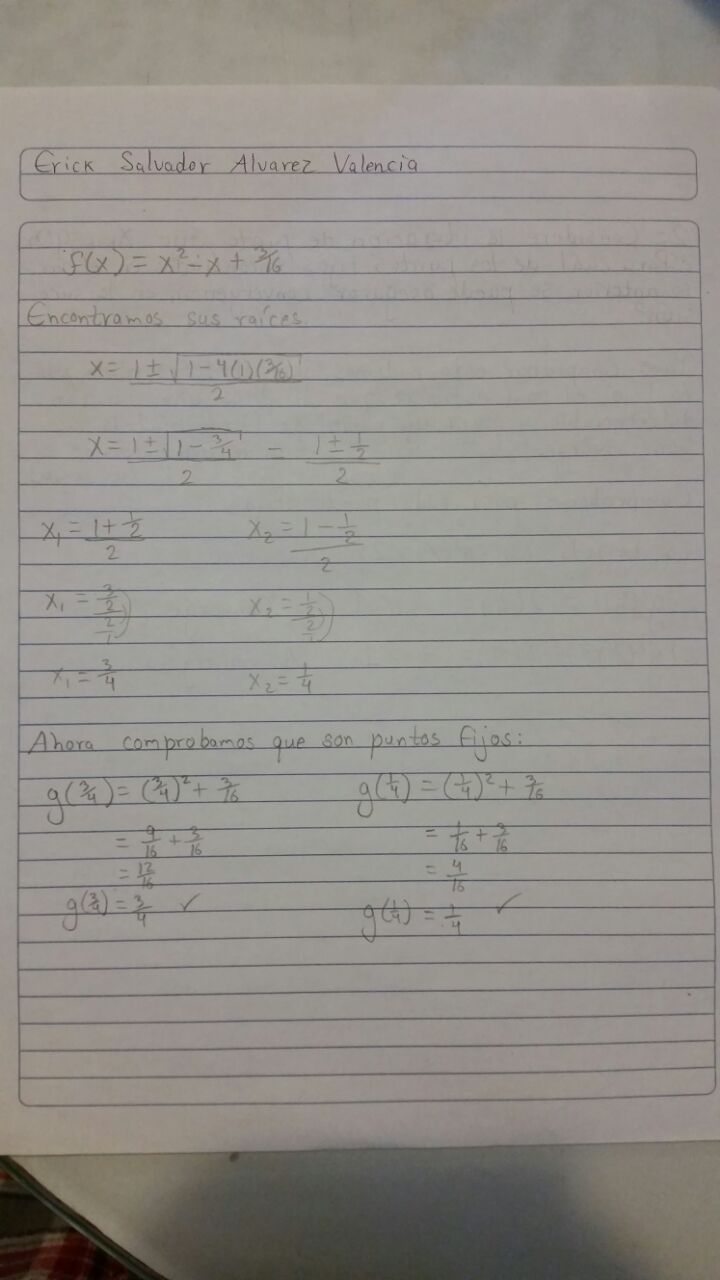 Erick Salvador Alvarez Valencia
f(x) = x² - x + 3/16
Encontramos sus raíces
x = (1 ± √(1 - 4(1)(3/16))) / 2
x = (1 ± √(1 - 3/4)) / 2 = (1 ± 1/2) / 2
x₁ = (1 + 1/2) / 2    x₂ = (1 - 1/2) / 2
x₁ = (3/2) / (2/1)    x₂ = (1/2) / (2/1)
x₁ = 3/4    x₂ = 1/4
Ahora comprobamos que son puntos fijos:
g(3/4) = (3/4)² + 3/16    g(1/4) = (1/4)² + 3/16
= 9/16 + 3/16    = 1/16 + 3/16
= 12/16    = 4/16
g(3/4) = 3/4 ✓    g(1/4) = 1/4 ✓